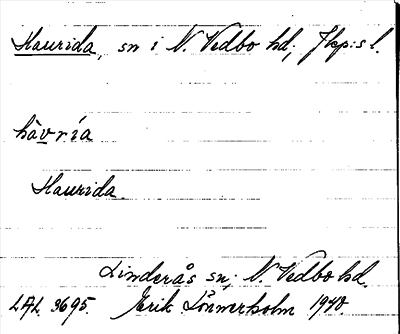 Haurida, sn i N. Vedbo hd, Jkp:s l.
hàvría
Haurida
Linderås sn, N. Vedbo hd.
LAL 3695. Erik Lönnerholm 1940